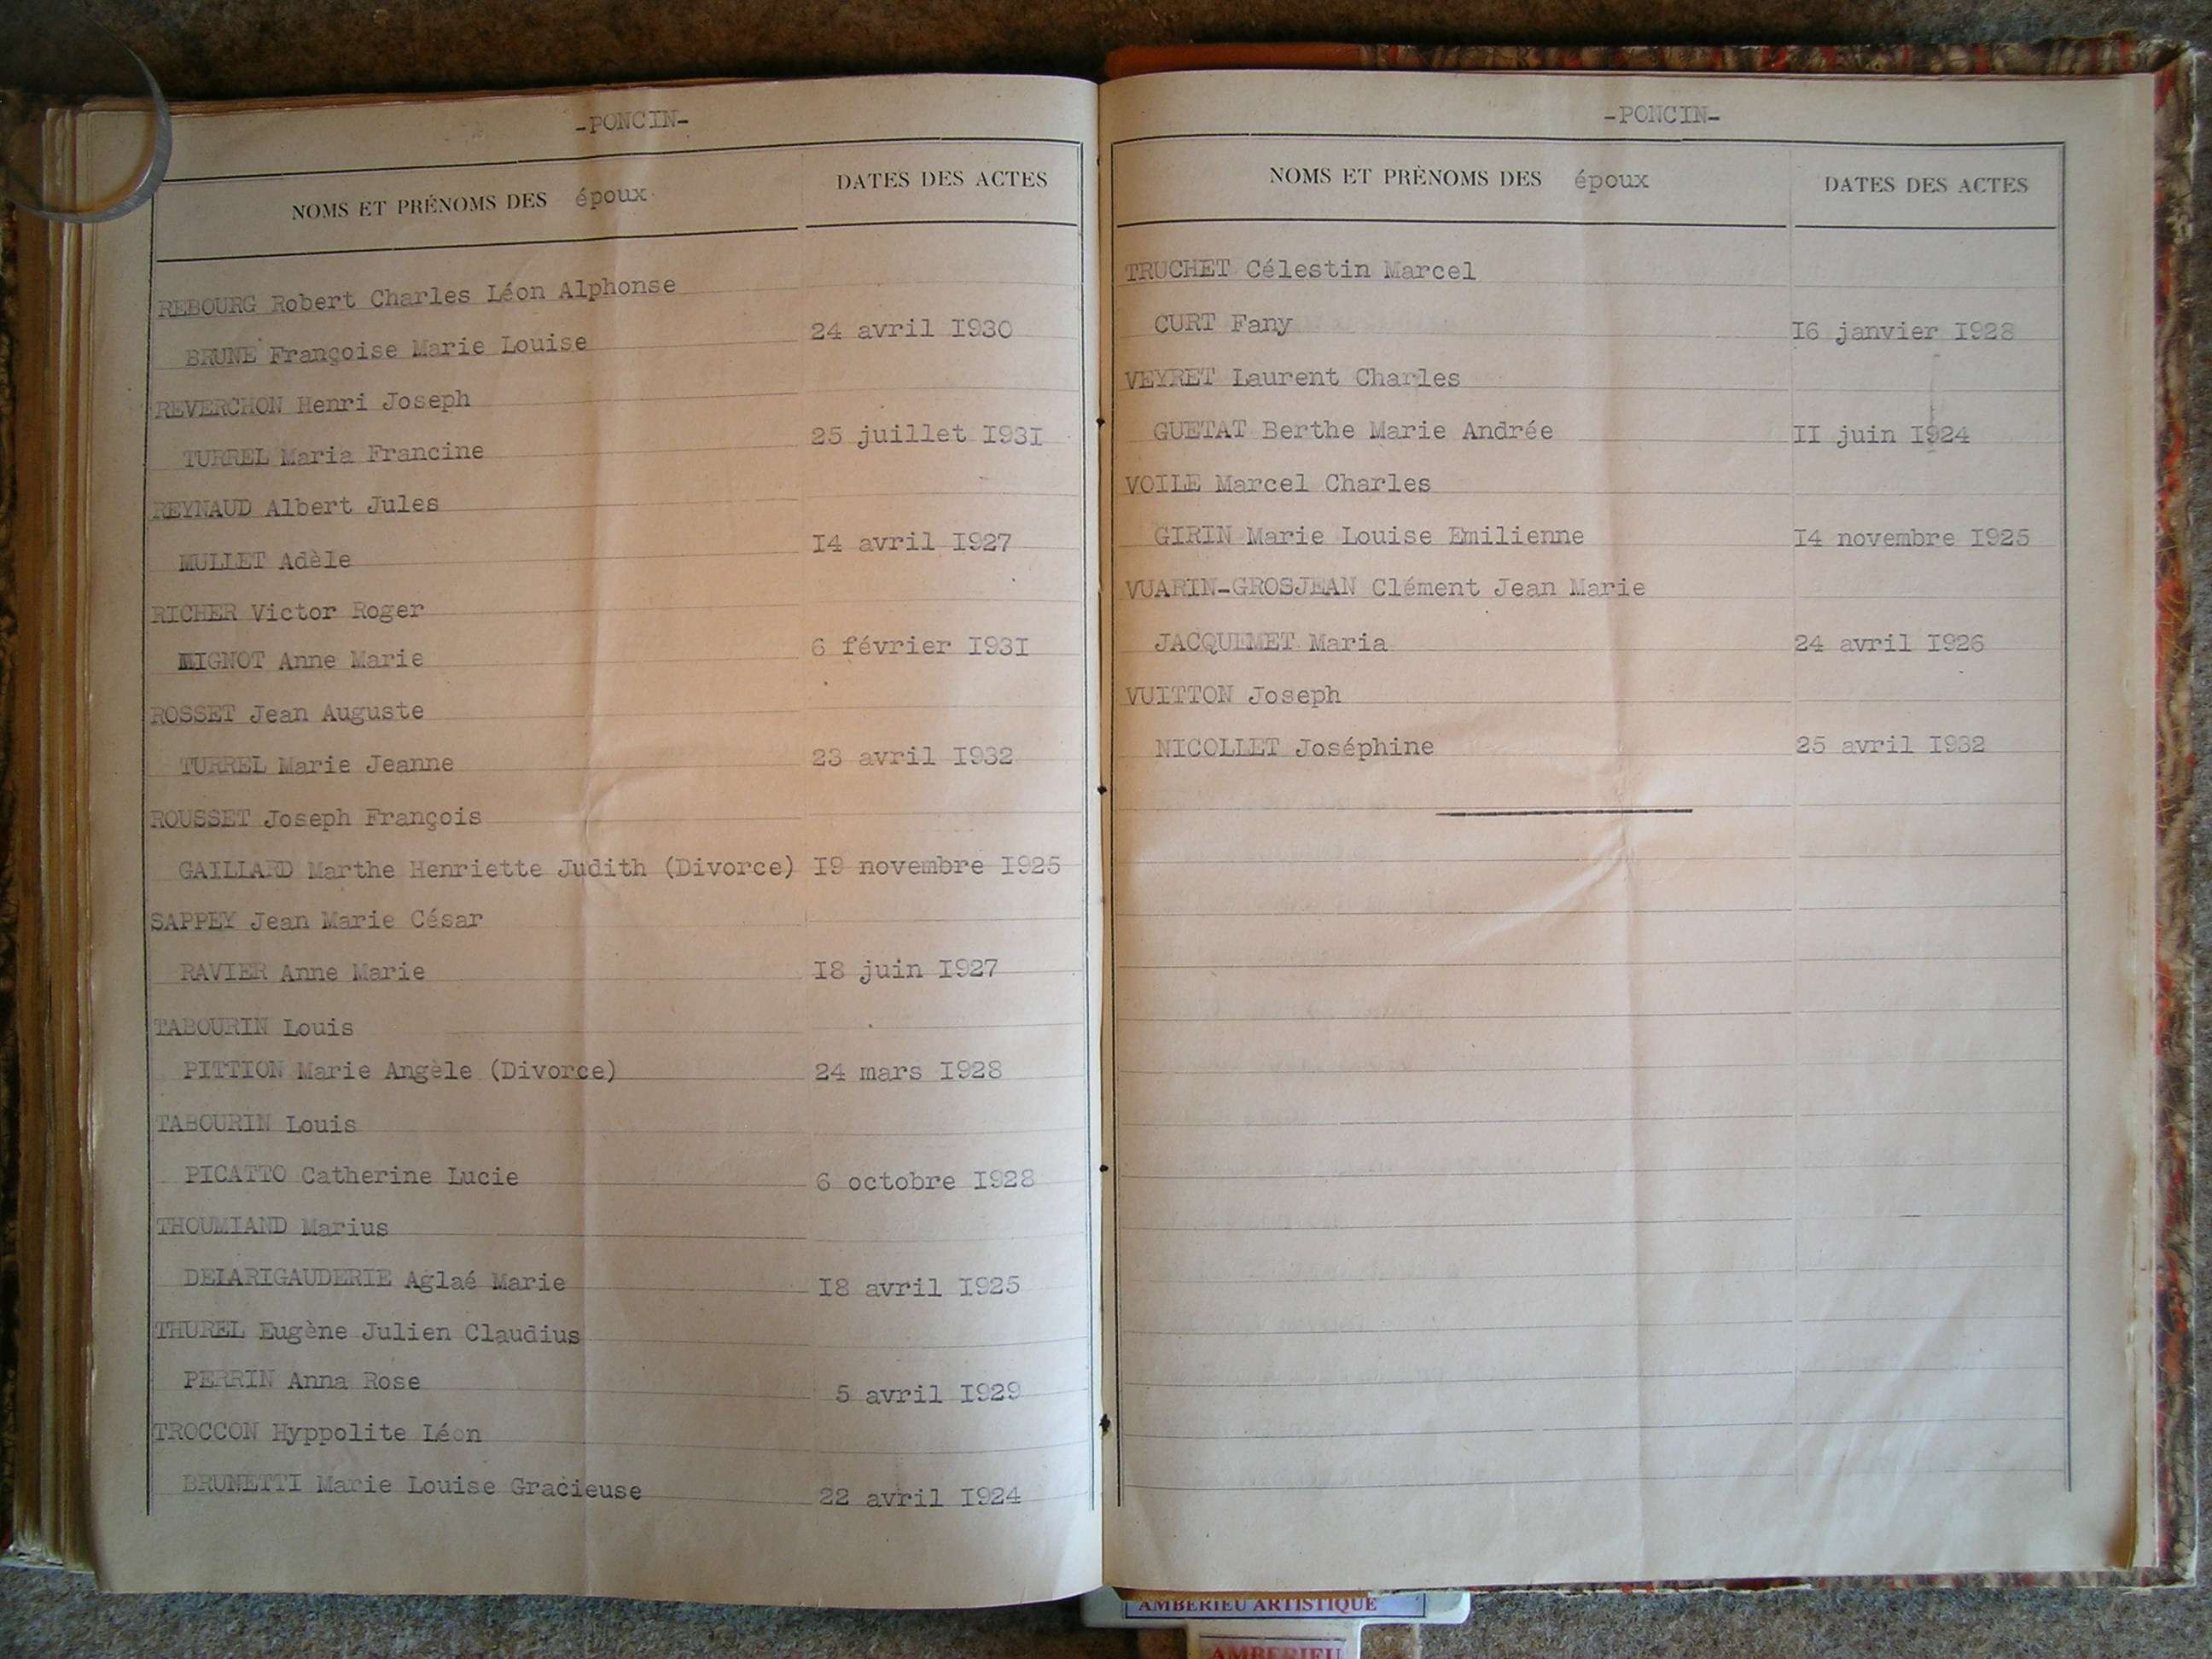 -PONCIN-
NOMS ET PRÉNOMS DES époux
DATES DES ACTES
REBOURG Robert Charles Léon Alphonse
BRUNE Françoise Marie Louise 24 avril I930
REVERCHON Henri Joseph
TURREL Maria Francine 25 juillet I93I
REYNAUD Albert Jules
MULLET Adèle I4 avril I927
RICHER Victor Roger
MIGNOT Anne Marie 6 février I93I
ROSSET Jean Auguste
TURREL Marie Jeanne 23 avril I932
ROUSSET Joseph François
GAILLARD Marthe Henriette Judith (Divorce) I9 novembre I925
SAPPEY Jean Marie César
RAVIER Anne Marie I8 juin I927
TABOURIN Louis
PITTION Marie Angèle (Divorce) 24 mars I928
TABOURIN Louis
PICATTO Catherine Lucie 6 octobre I928
THOUMIAND Marius
DELARIGAUDERIE Aglaé Marie I8 avril I925
THUREL Eugène Julien Claudius
PERRIN Anna Rose 5 avril I929
TROCCON Hyppolite Léon
BRUNETTI Marie Louise Gracieuse 22 avril I924
-PONCIN-
NOMS ET PRÉNOMS DES époux
DATES DES ACTES
TRUCHET Célestin Marcel
CURT Fany I6 janvier I928
VEYRET Laurent Charles
GUETAT Berthe Marie Andrée II juin I924
VOILE Marcel Charles
GIRIN Marie Louise Emilienne I4 novembre I925
VUARIN-GROSJEAN Clément Jean Marie
JACQUEMET Maria 24 avril I926
VUITTON Joseph
NICOLLET Joséphine 25 avril I932
AMBERIEU ARTISTIQUE
AMBERIEU